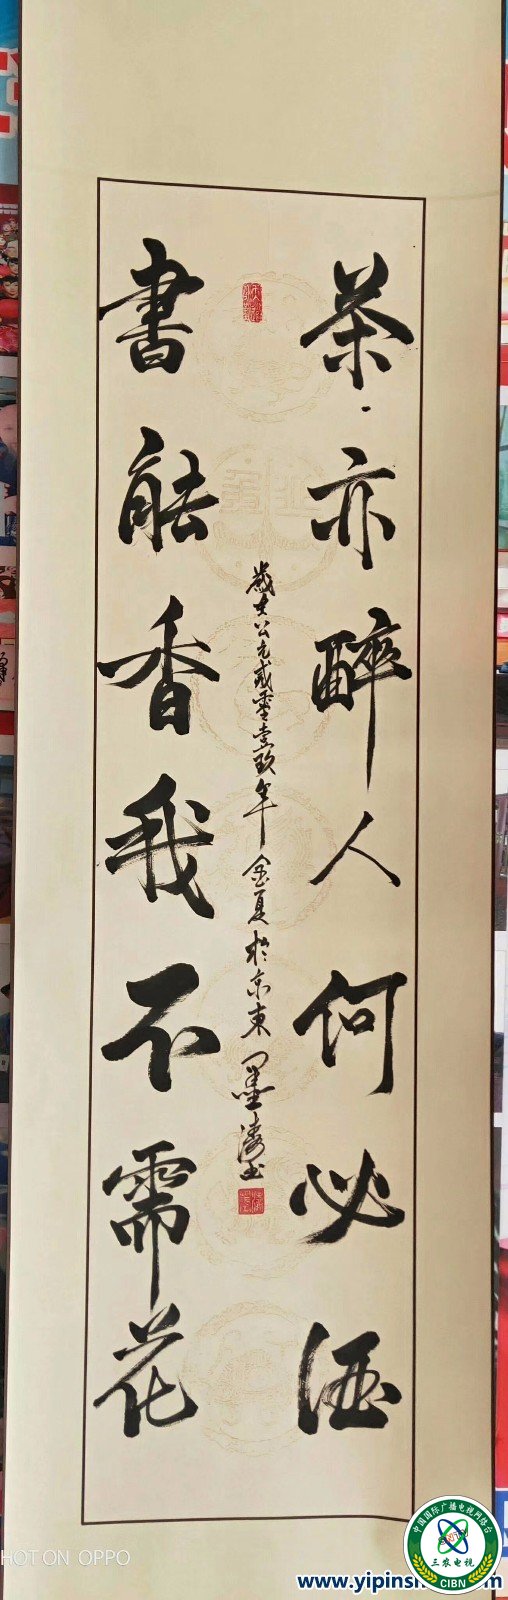 茶亦醉人何必酒
書能香我不需花
歲在公元貳零壹玖年金夏於京東墨濤书
SHOT ON OPPO
中国国际广播电视网络台
三农电视
CIBN
www.yipinsh
m